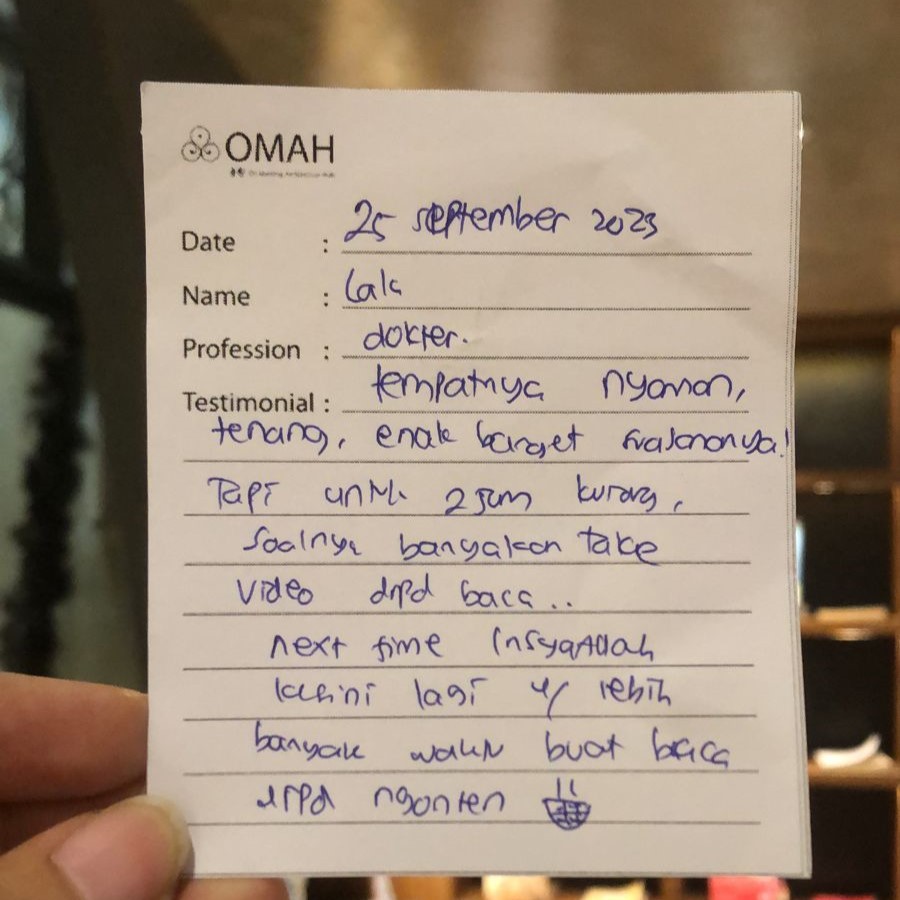 OMAH
Date : 25 September 2023
Name : Lala
Profession : dokter.
Testimonial : tempatnya nyaman,
tenang, enak banget suasananya!
Tapi untk 2 jam kurang,
Soalnya banyakan take
video drpd baca..
next time InsyaAllah
kesini lagi u/ lebih
banyak waktu buat baca
drpd ngonten